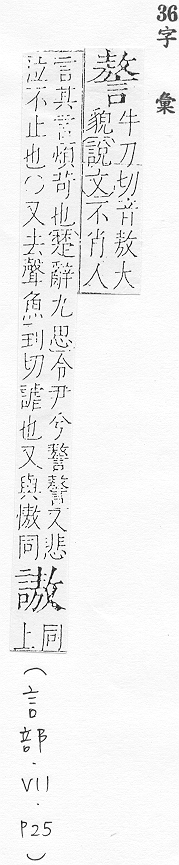 36字彙
謷
牛刀切音敖大
貌說文不肖人
言其言煩苛也楚辭九思令尹兮謷謷又悲
泣不止也○又去聲魚到切謔也又與慠同
謸
同
上
(言部.VII.P25)